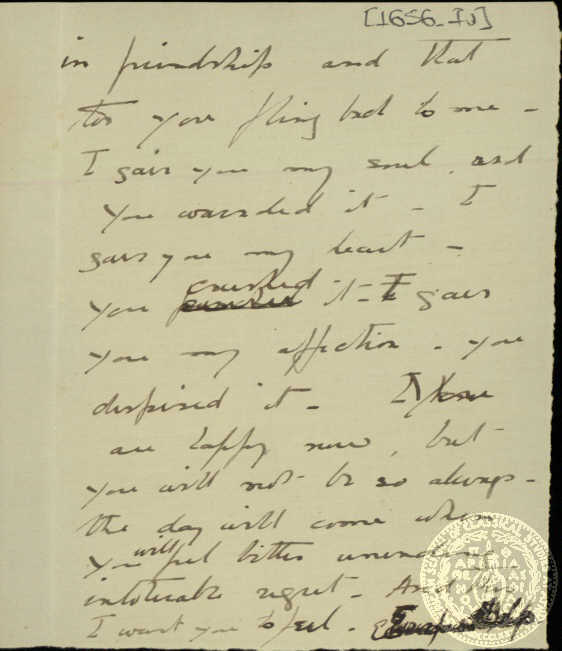 [1656_IJ]
in friendship and that
too you fling back to me -
I gave you my soul, and
you wounded it - I
gave you my heart -
you crushed it - I gave
you my affection - you
despised it - I you
are happy now, but
you will not be so always -
the day will come when
you will feel bitter unending
intolerable regret - And this
I want you to feel -